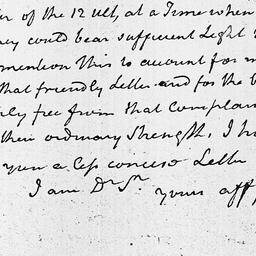 of the 12 Ult, at a Time when
could bear sufficient Light
mention this to account for
that friendly Letter and for the
free from that Complain
their ordinary Strength, I h
you a less concise Letter
I am Dr Sr
yours aff